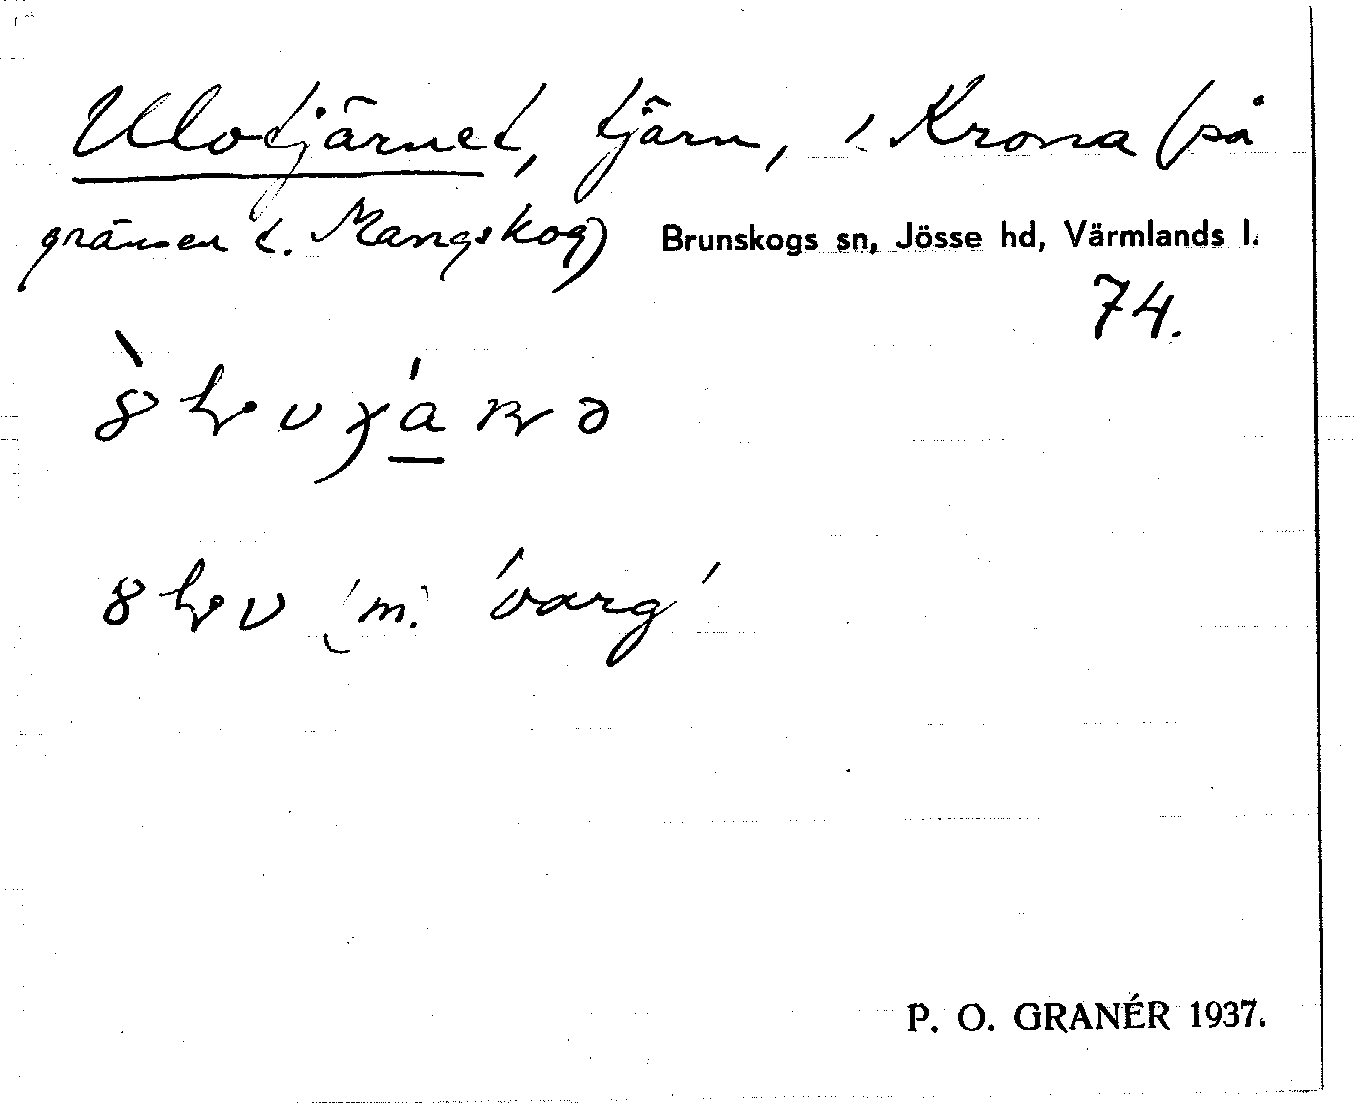 Ulotjärnet, tjärn, i Krona (på
gränsen t. Mangskog) Brunskogs sn, Jösse hd, Värmlands l.
74.
(m.) 'varg'
P. O. GRANÉR 1937.